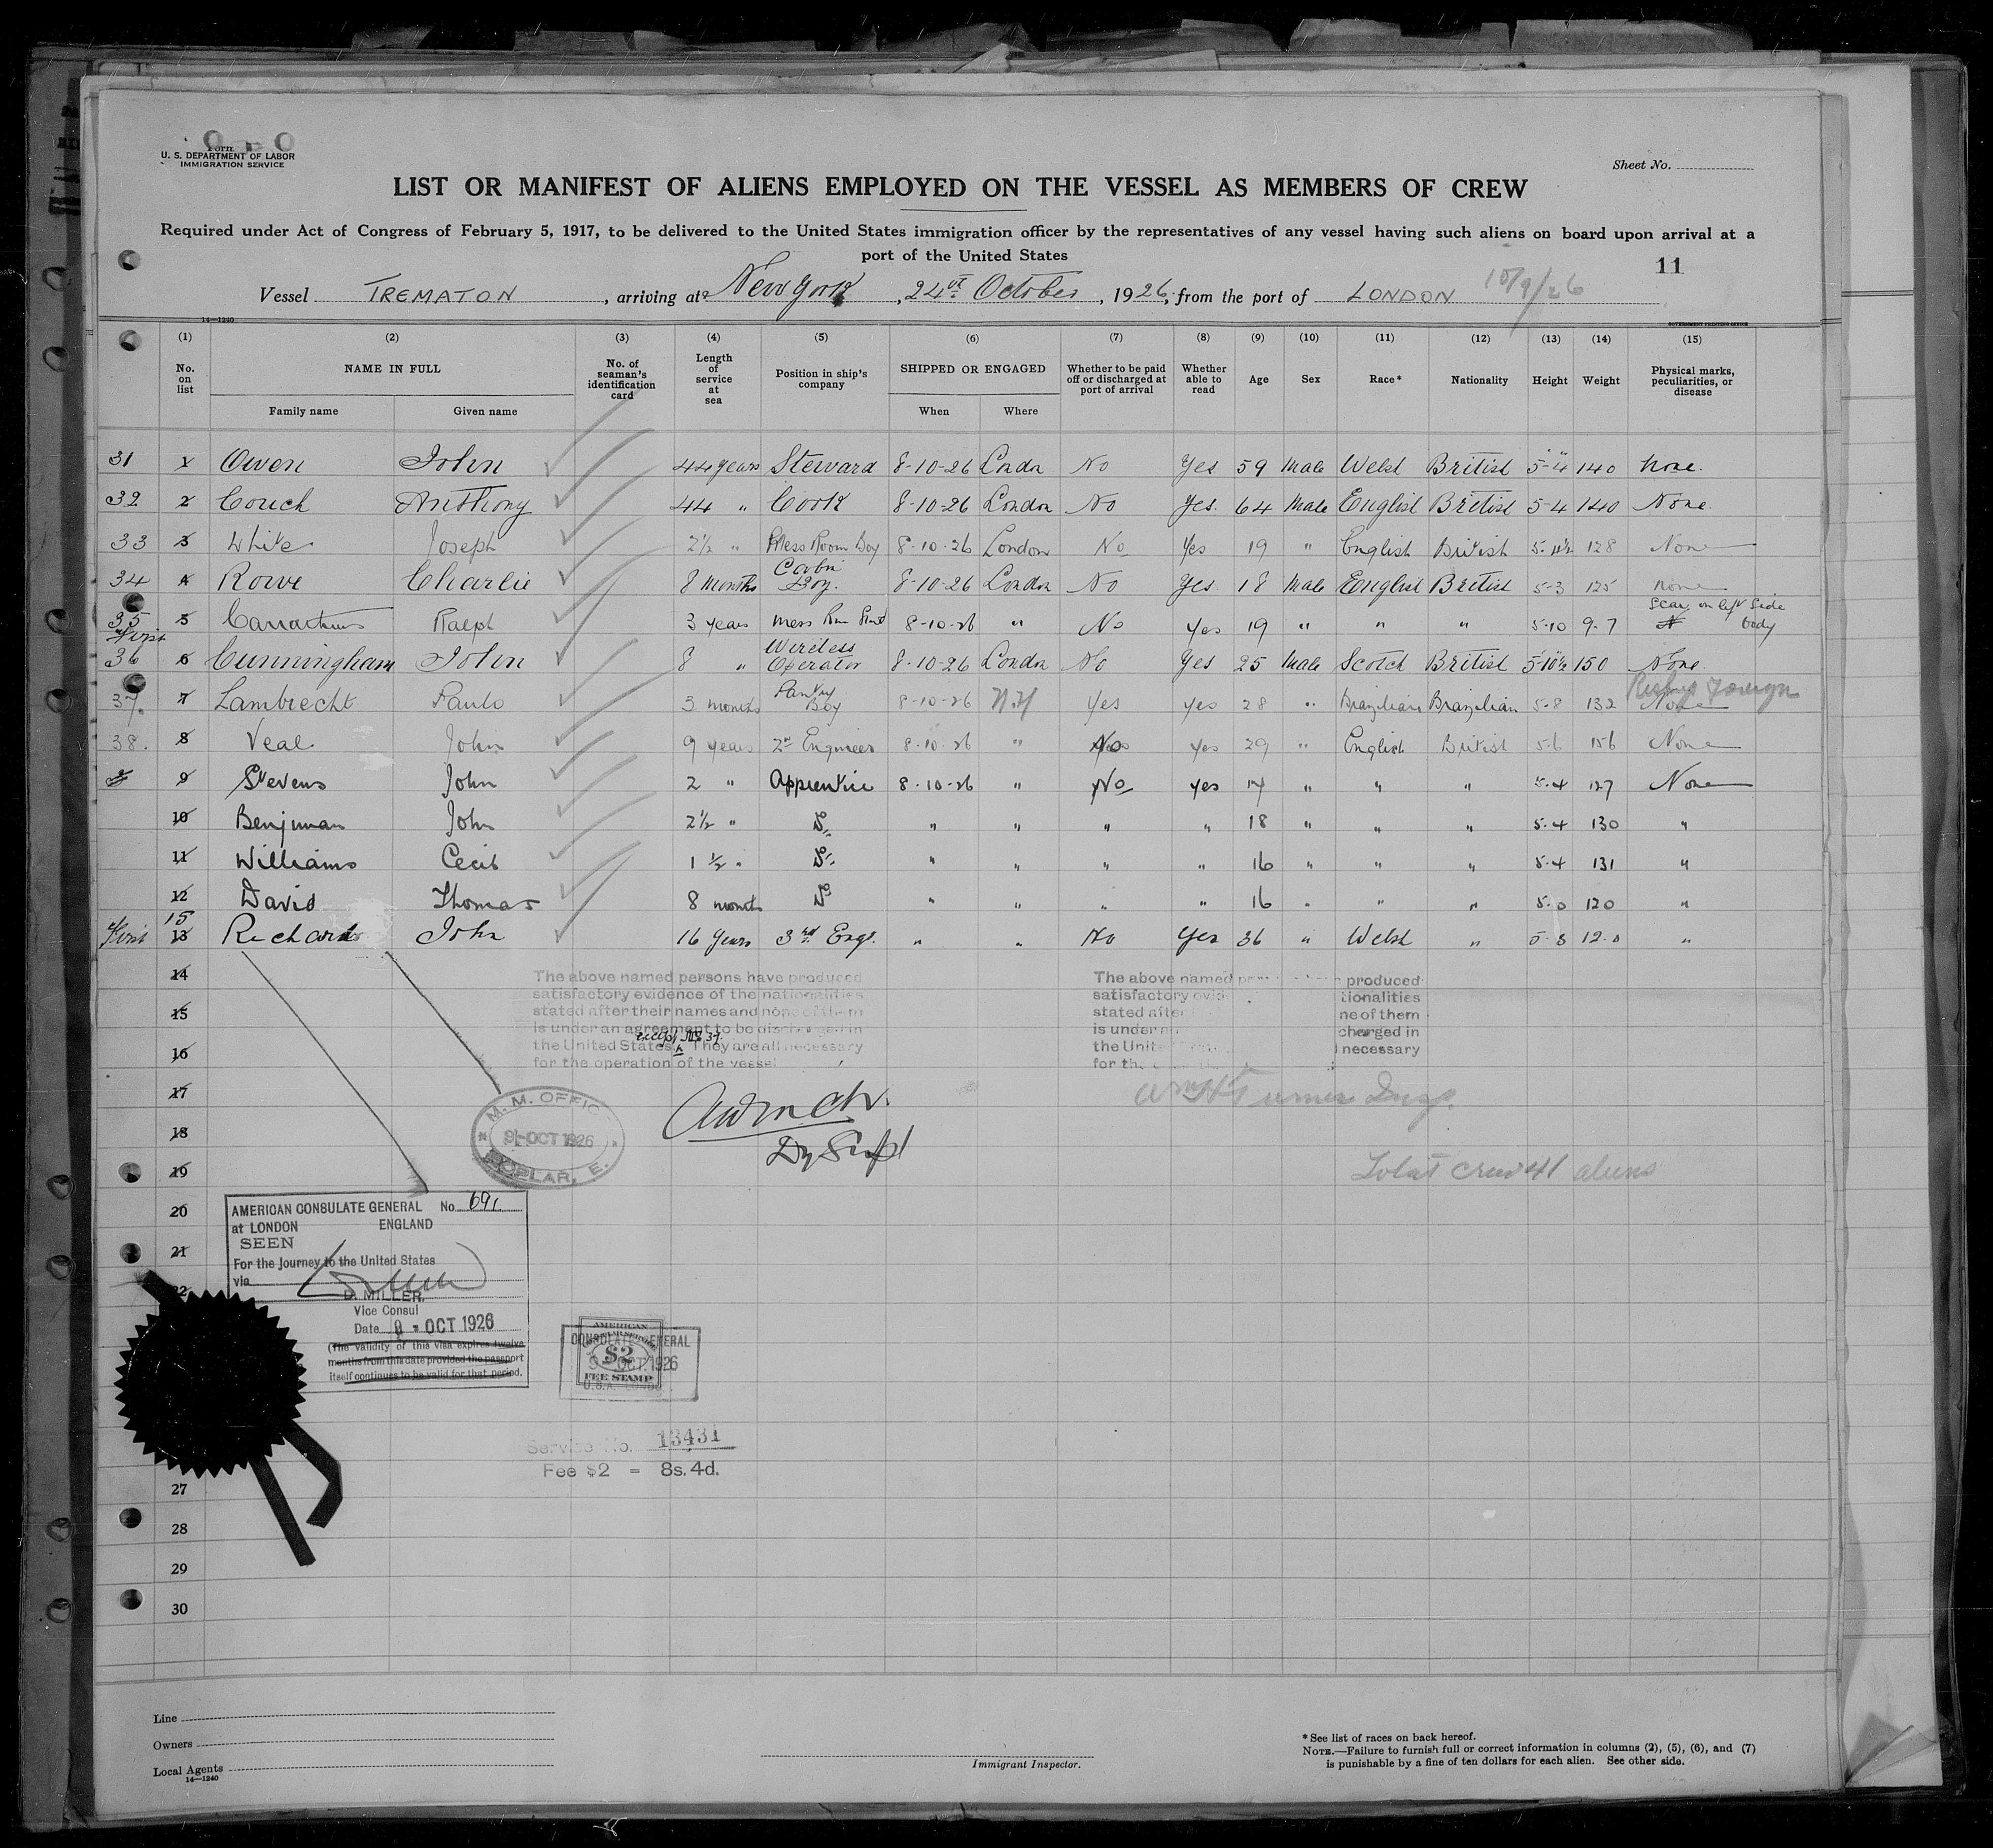 Form
U. S. DEPARTMENT OF LABOR
IMMIGRATION SERVICE
Sheet No.
LIST OR MANIFEST OF ALIENS EMPLOYED ON THE VESSEL AS MEMBERS OF CREW
Required under Act of Congress of February 5, 1917, to be delivered to the United States immigration officer by the representatives of any vessel having such aliens on board upon arrival at a
port of the United States
11
Vessel TREMATON, arriving at New York, 24th October, 1926, from the port of LONDON 10/9/26
14—1240 GOVERNMENT PRINTING OFFICE
(1) (2) (3) (4) (5) (6) (7) (8) (9) (10) (11) (12) (13) (14) (15)
No. on list NAME IN FULL No. of seaman's identification card Length of service at sea Position in ship's company SHIPPED OR ENGAGED Whether to be paid off or discharged at port of arrival Whether able to read Age Sex Race* Nationality Height Weight Physical marks, peculiarities, or disease
Family name Given name When Where
31 1 Owen John 44 years Steward 8-10-26 Londn No Yes 59 Male Welsh British 5-4 140 None.
32 2 Couch Anthony 44 " Cook 8-10-26 London No Yes. 64 Male English British 5-4 140 None.
33 3 White Joseph 2½ " Mess Room Boy 8-10-26 London No Yes 19 " English British 5-11½ 128 None
34 4 Rowe Charlie 8 months Cabin Boy. 8-10-26 London No Yes 18 Male English British 5-3 125 None
35 5 Ralph 3 years Mess Rm 8-10-26 " No Yes 19 " " " 5-10 9-7 Scar on left side body
First
36 6 Cunningham John 8 " Wireless Operator 8-10-26 London No Yes 25 Male Scotch British 5-10½ 150 None.
37. 7 Lambrecht Paulo 3 months Pantry Boy 8-10-26 N.Y Yes yes 28 " Brazilian Brazilian 5-8 132 None Reship foreign
38. 8 Veal John 9 years 2nd Engineer 8-10-26 " No Yes 29 " English British 5-6 156 None
9 Stevens John 2 " Apprentice 8-10-26 " No yes 17 " " " 5-4 127 None
10 Benjman John 2½ " Do. " " " " 18 " " " 5-4 130 "
11 Williams Cecil 1½ " Do. " " " " 16 " " " 5-4 131 "
12 David Thomas 8 months Do " " " " 16 " " " 5-0 120 "
First 15 13 Richards John 16 years 3rd Engr. " " No Yes 36 " Welsh " 5-8 12-0 "
14
15
16
17
18
19
20
21
22
27
28
29
30
The above named persons have produced
satisfactory evidence of the nationalities
stated after their names and none of them
is under an agreement to be discharged in
except No 37.
the United States. They are all necessary
for the operation of the vessel
The above named produced
satisfactory evid tionalities
stated after ne of them
is under charged in
the Unit necessary
for th
Turner Insp.
Dy Supt
Total crew 41 aliens
M. M. OFFIC
9-OCT 1926
POPLAR, E.
AMERICAN CONSULATE GENERAL No. 691.
at LONDON ENGLAND
SEEN
For the Journey to the United States
via
D. MILLER,
Vice Consul
Date 9 - OCT 1926
(The validity of this visa expires twelve
months from this date provided the passport
itself continues to be valid for that period.
AMERICAN
CONSULATE GENERAL
$2
9 OCT. 1926
FEE STAMP
U.S.A.
Service No. 13431
Fee $2 = 8s. 4d.
Line
Owners
Local Agents
14—1240
Immigrant Inspector.
* See list of races on back hereof.
NOTE.—Failure to furnish full or correct information in columns (2), (5), (6), and (7)
is punishable by a fine of ten dollars for each alien. See other side.